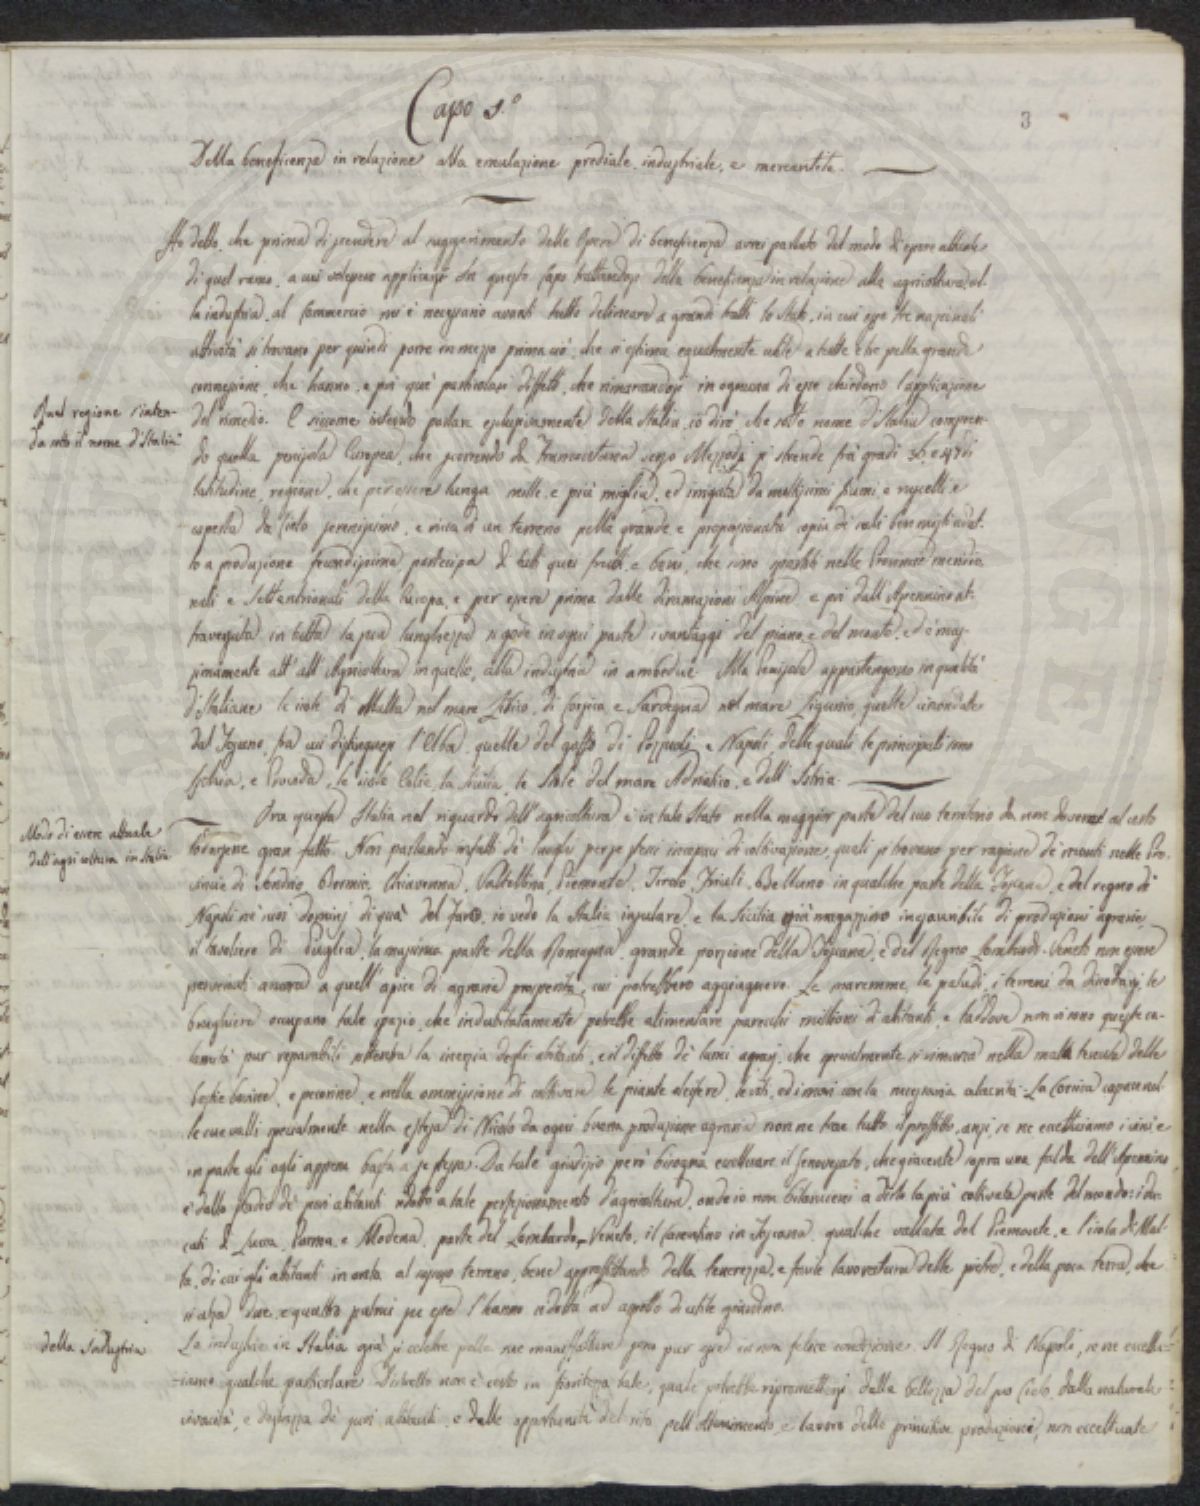 3
Capo 1.°
Della beneficenza in relazione alla emulazione prediale, industriale, e mercantile.
Ho detto, che prima di scendere al suggerimento delle Opere di beneficenza avrei parlato del modo di essere attuale
di quel ramo, a cui volevansi applicare. In questo Capo trattandosi della beneficenza in relazione alla agricoltura, al-
la industria, al Commercio mi è necessario avanti tutto delineare a grandi tratti lo Stato, in cui esse tre nazionali
attività si trovano per quindi porre in mezzo prima ciò, che si estima egualmente utile a tutte e tre pella grande
connessione, che hanno, e poi que' particolari difetti, che rimarcandosi in ognuna di esse chiedono l'applicazione
Qual regione s'inten-
da sotto il nome d'Italia
del rimedio. E siccome intendo parlare esclusivamente della Italia, io dirò, che sotto nome d'Italia compren-
do quella penisola Europea, che scorrendo da Tramontana verso Mezzodì si stende frà gradi 36. e 47 di
latitudine, regione, che per essere lunga mille, e più miglia, ed irrigata da moltissimi fiumi, e ruscelli, e
coperta da Cielo serenissimo, e ricca di un terreno pella grande e proporzionata copia di sali ben misti adat-
to a produzione fecondissima partecipa di tutti quei frutti, e beni, che sono spartiti nelle Provincie meridio-
nali e Settentrionali della Europa, e per essere prima dalle diramazioni Alpine e poi dall'Apennino at-
traversata in tutta la sua lunghezza si gode in ogni parte i vantaggi del piano, e del monte, ed è mas-
simamente atta all'Agricoltura in quello, alla industria in ambedue. Alla Penisola appartengono in qualità
d'Italiane le isole di Malta nel mare Libico, di Corsica e Sardegna nel mare Ligustico, quelle circondate
dal Toscano, fra cui distinguesi l'Elba, quelle del golfo di Pozzuoli e Napoli, delle quali le principali sono
Ischia, e Procida, le isole Eolie, la Sicilia, le Isole del mare Adriatico, e dell'Istria.
Modo di essere attuale
dell'agricoltura in Italia
Ora questa Italia nel riguardo dell'agricoltura è in tale Stato nella maggior parte del suo territorio da non doversene al certo
lodarsene gran fatto. Non parlando infatti de' luoghi per se stessi incapaci di coltivazione, quali si trovano per ragione de' monti nelle Pro-
vincie di Sondrio, Bormio, Chiavenna, Valtellina, Piemonte, Tirolo, Friuli, Belluno in qualche parte della Toscana, e del regno di
Napoli ne' suoi dominj di quà del Faro, io vedo la Italia insulare, e la Sicilia già magazzino inesauribile di produzioni agrarie,
il tavoliere di Puglia, la massima parte della Romagna, grande porzione della Toscana, e del Regno Lombardo-Veneto non essere
pervenuti ancora a quell'apice di agraria prosperità, cui potrebbero aggiugnere. Le maremme, le paludi, i terreni da dissodarsi, le
brughiere occupano tale spazio, che indubitatamente potrebbe alimentare parecchi millioni di abitanti, e laddove non vi sono queste ca-
lamità pur reparabili la inerzia degli abitanti, e il difetto de' lumi agrarj, che specialmente si rimarca nella mala tenuta delle
bestie bovine, e pecorine, e nella ommissione di coltivare le piante oleifere, le viti, ed i mori con la necessaria alacrità. La Corsica capace nel-
le sue valli specialmente nella di Niolo da ogni buona produzione agraria non ne trae tutto il profitto, anzi, se ne eccettuiamo i vini, e
in parte gli oglj appena basta a se stessa. Da tale giudizio però bisogna eccettuare il Genovesato, che giacente sopra una falda dell'Apennino
è dallo studio de' suoi abitanti ridotto a tale perfezionamento d'agricoltura, onde io non bilancerei a dirlo la più coltivata parte del mondo: i du-
cati di Lucca, Parma, e Modena, parte del Lombardo-Veneto, il fiorentino in Toscana, qualche vallata del Piemonte, e l'isola di Mal-
ta, di cui gli abitanti in onta al terreno, bene approfittando della tenerezza, e facile lavoratura delle pietre, e della poca terra, che
si alza due, o quattro palmi su esse l'hanno ridotta ad aspetto di utile giardino.
della Industria
La industria in Italia già sì celebre pelle sue manifatture sono pur esse in non felice condizione. Il Regno di Napoli, se ne eccettu-
iamo qualche particolare Distretto non è certo in floridezza tale, quale potrebbe ripromettersi dalla bellezza del suo Cielo, dalla naturale
vivacità, e destrezza de' suoi abitanti, e dalle opportunità del sito pell'ottenimento, e lavoro delle primitive produzioni, non eccettuate